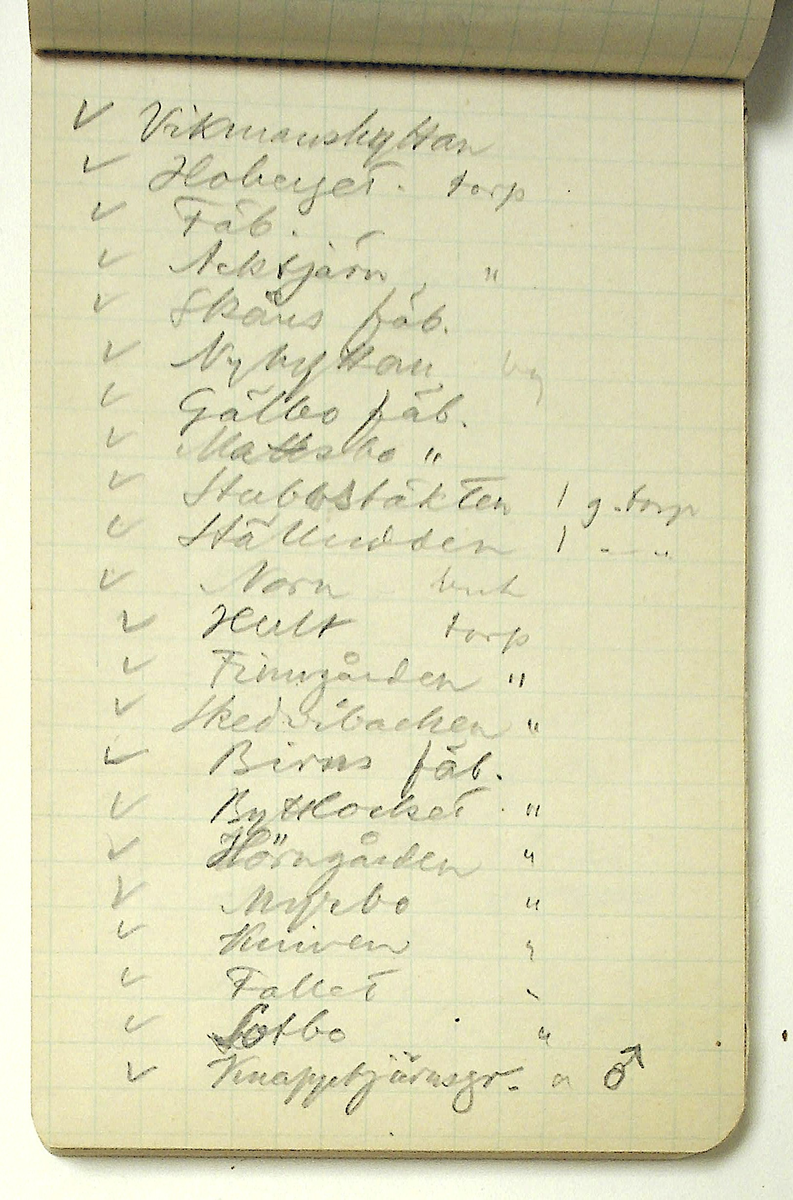 ✓ Vikmanshyttan
✓ Hoberget. torp
✓ Fäb.
✓ Acktjärn "
✓ Skäns fäb.
✓ Nyhyttan by
✓ Gälbo fäb.
✓ Mattsbo "
✓ Stubbstäkten 1 g. torp
✓ Ställudden 1 - "
✓ Norn bruk
✓ Hult torp
✓ Finngården "
✓ Skedvibacken "
✓ Birns fäb.
✓ Byttlocket "
✓ Hörngården "
✓ Myrbo "
✓ Kniven "
✓ Fallet "
✓ Sotbo "
✓ Knapptjärnsgr. " ♂